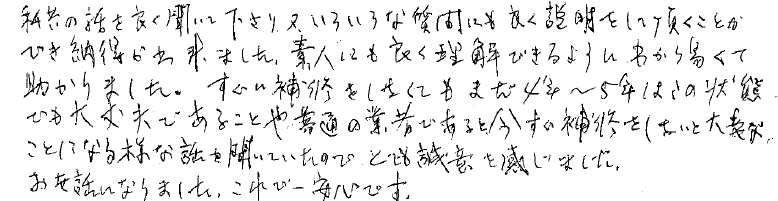 私共の話を良く聞いて下さり又いろいろな質問にも良く説明をして頂くことが
でき納得が出来ました。素人にも良く理解できるように分かり易くて
助かりました。すぐに補修をしなくてもまだ4年〜5年はこの状態
でも大丈夫であることや普通の業者であると今すぐ補修をしないと大変な
ことになる様な話を聞いていたので とても誠意を感じました。
お世話になりました。これで一安心です。